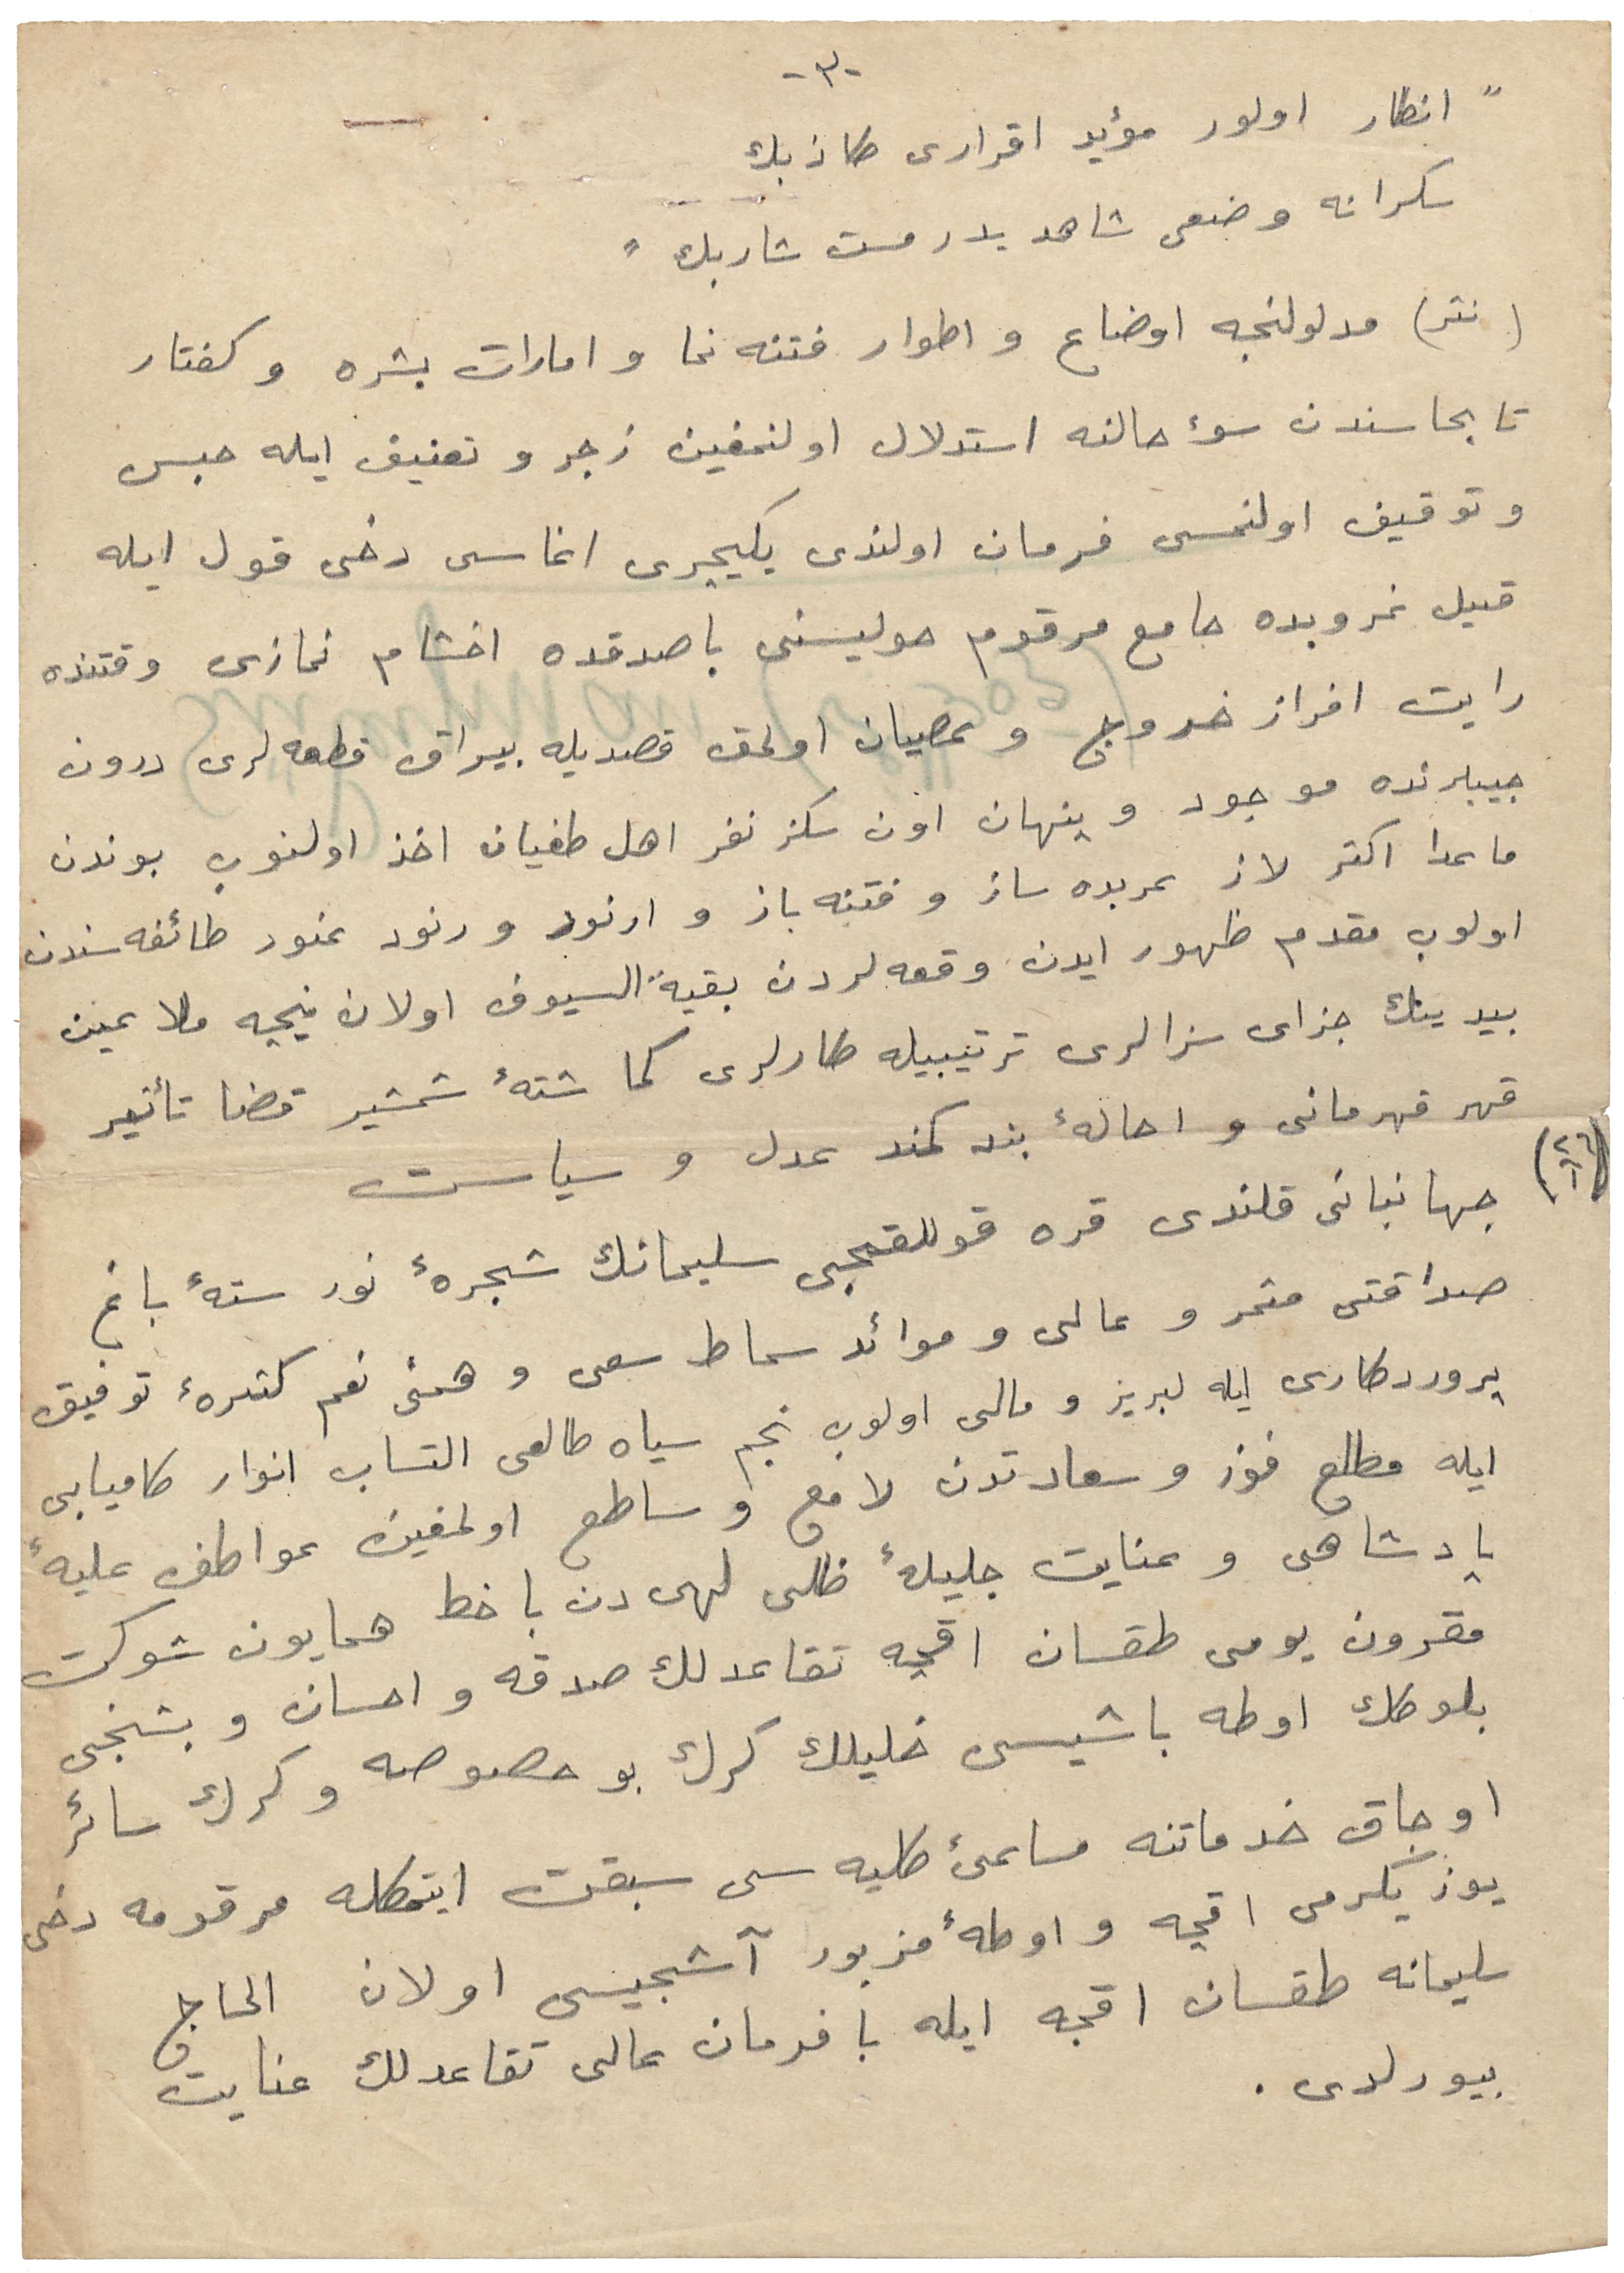 -٣-
" انكار اولور مؤيد اقرارى كاذبك
سكرانه وضعى شاهديدر مست شاربك "
(نثر) مدلولنجه اوضاع و اطوار فتنه نما و امارات بشره و كفتار
نابجاسندن سوء حالنه استدلال اولنمغين زجر و تعنيف ايله حبس
و توقيف اولنمسى فرمان اولندى يكيچرى اغاسى دخى قول ايله
قبيل غروبده جامع مرقوم حوليسنى باصدقده اخشام نمازى وقتنده
رايت افراز خروج و عصيان اولمق قصديله بيراق قطعه لرى درون
جيبلرنده موجود و پنهان اون سكز نفر اهل طغيان اخذ اولنوب بوندن
ماعدا اكثر لاز عربده ساز و فتنه باز و ارنود و رنود عنود طائفه سندن
اولوب مقدم ظهور ايدن وقعه لردن بقية السيوف اولان نيجه ملاعين
بيدينك جزاى سزالرى ترتيبيله كارلرى كماشتهٔ شمشير قضا تأثير
قهر قهرمانى و احالهٔ بند كمند عدل و سياست
(٢٦ ١)
جهانبانى قلندى قره قوللقجى سليمانك شجرهٔ نورستهٔ باغ
صداقتى مثمر و عالى و موائد سماط سعى و همتى نعم كثيرهٔ توفيق
پروردكارى ايله لبريز و مالى اولوب نجم سياه طالعى اكتساب انوار كاميابى
ايله مطلع فوز و سعادتدن لامع و ساطع اولمغين عواطف عليهٔ
پادشاهى و عنايت جليلهٔ ظل الهى دن با خط همايون شوكت
مقرون يومى طقسان اقچه تقاعدلك صدقه و احسان و بشنجى
بلوكك اوطه باشيسى خليلك كرك بو خصوصه و كرك سائر
اوجاق خدماتنه مساعئ كليه سى سبقت ايتمكله مرقومه دخى
يوز يكرمى اقچه و اوطهٔ مزبور آشجيسى اولان الحاج
سليمانه طقسان اقچه ايله با فرمان عالى تقاعدلك عنايت
بيورلدى .